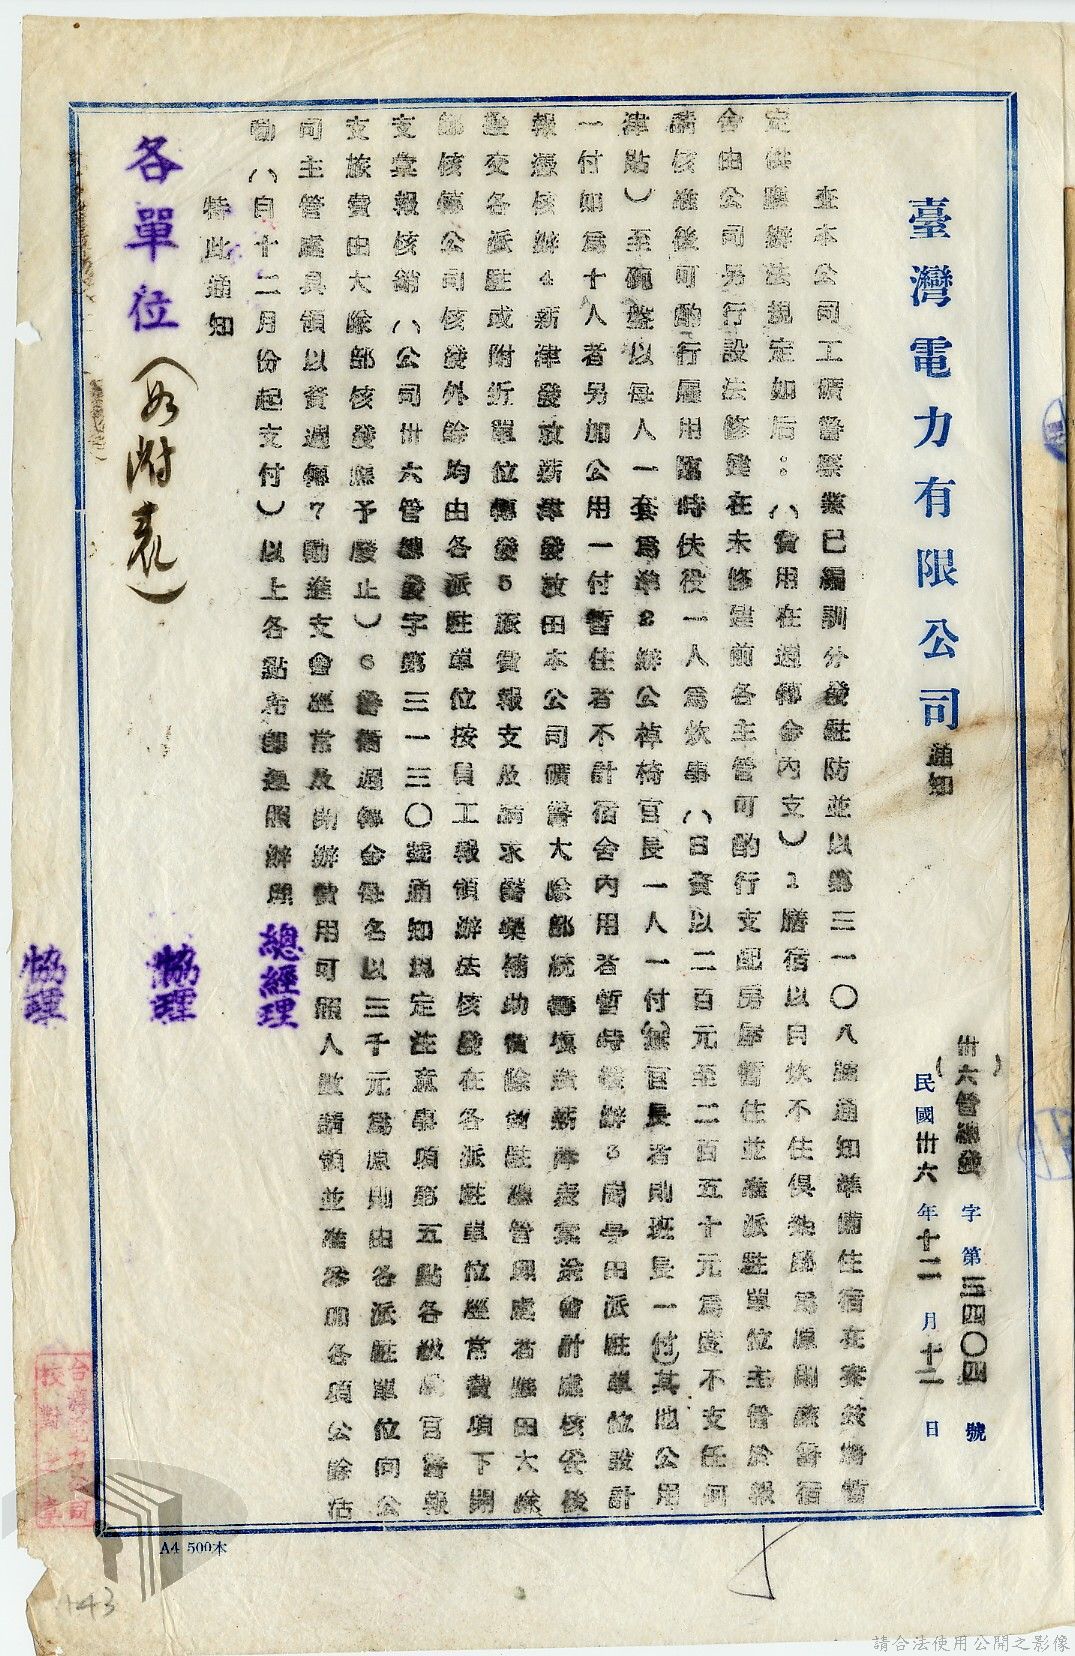 臺灣電力有限公司通知
(卅六管總發)字第三四〇四號
民國卅六年十二月十二日
查本公司工礦警察業已編訓分發駐防並以第三一〇八號通知準備住宿在案茲將暫
定供應辦法規定如后:(費用在週轉金內支)1膳宿以日炊不住俱為原則礦警宿
舍由公司另行設法修建在未修建前各主管可酌行支配房屋暫住並准派駐單位主管於報
請核准後可酌行雇用臨時伕役一人為炊事(日資以二百元至二百五十元為度不支任何
津貼)至碗盤以每人一套為準2辦公棹椅官長一人一付(無官長者則班長一付)其他公用
一付如為十人者另加公用一付暫住者不計宿舍內用者暫時緩辦3崗亭由派駐單位設計
報憑核辦4新津發放薪津發放由本公司礦警大隊部統轉填表薪津表彙送會計處核簽後
發交各派駐或附近單位轉發5旅費報支及請求醫藥補助費除駐總管理處者應由大隊
部核轉公司核發外餘均由各派駐單位按員工報領辦法核發在各派駐單位經常費項下開
支彙報核銷(公司卅六管總發字第三一三〇號通知規定注意事項第五點各級官警報
支旅費由大隊部核發應予廢止)6警衛週轉金每名以三千元為原則由各派駐單位向公
司主管處具領以資週轉7勵進支會經常及開辦費用可照人數請領並准參加各項公餘活
動(自十二月份起支付)以上各點希即遵照辦理
特此通知
各單位(如附表)
總經理
協理
協理
校對之章
A4 500本
143
請合法使用公開之影像